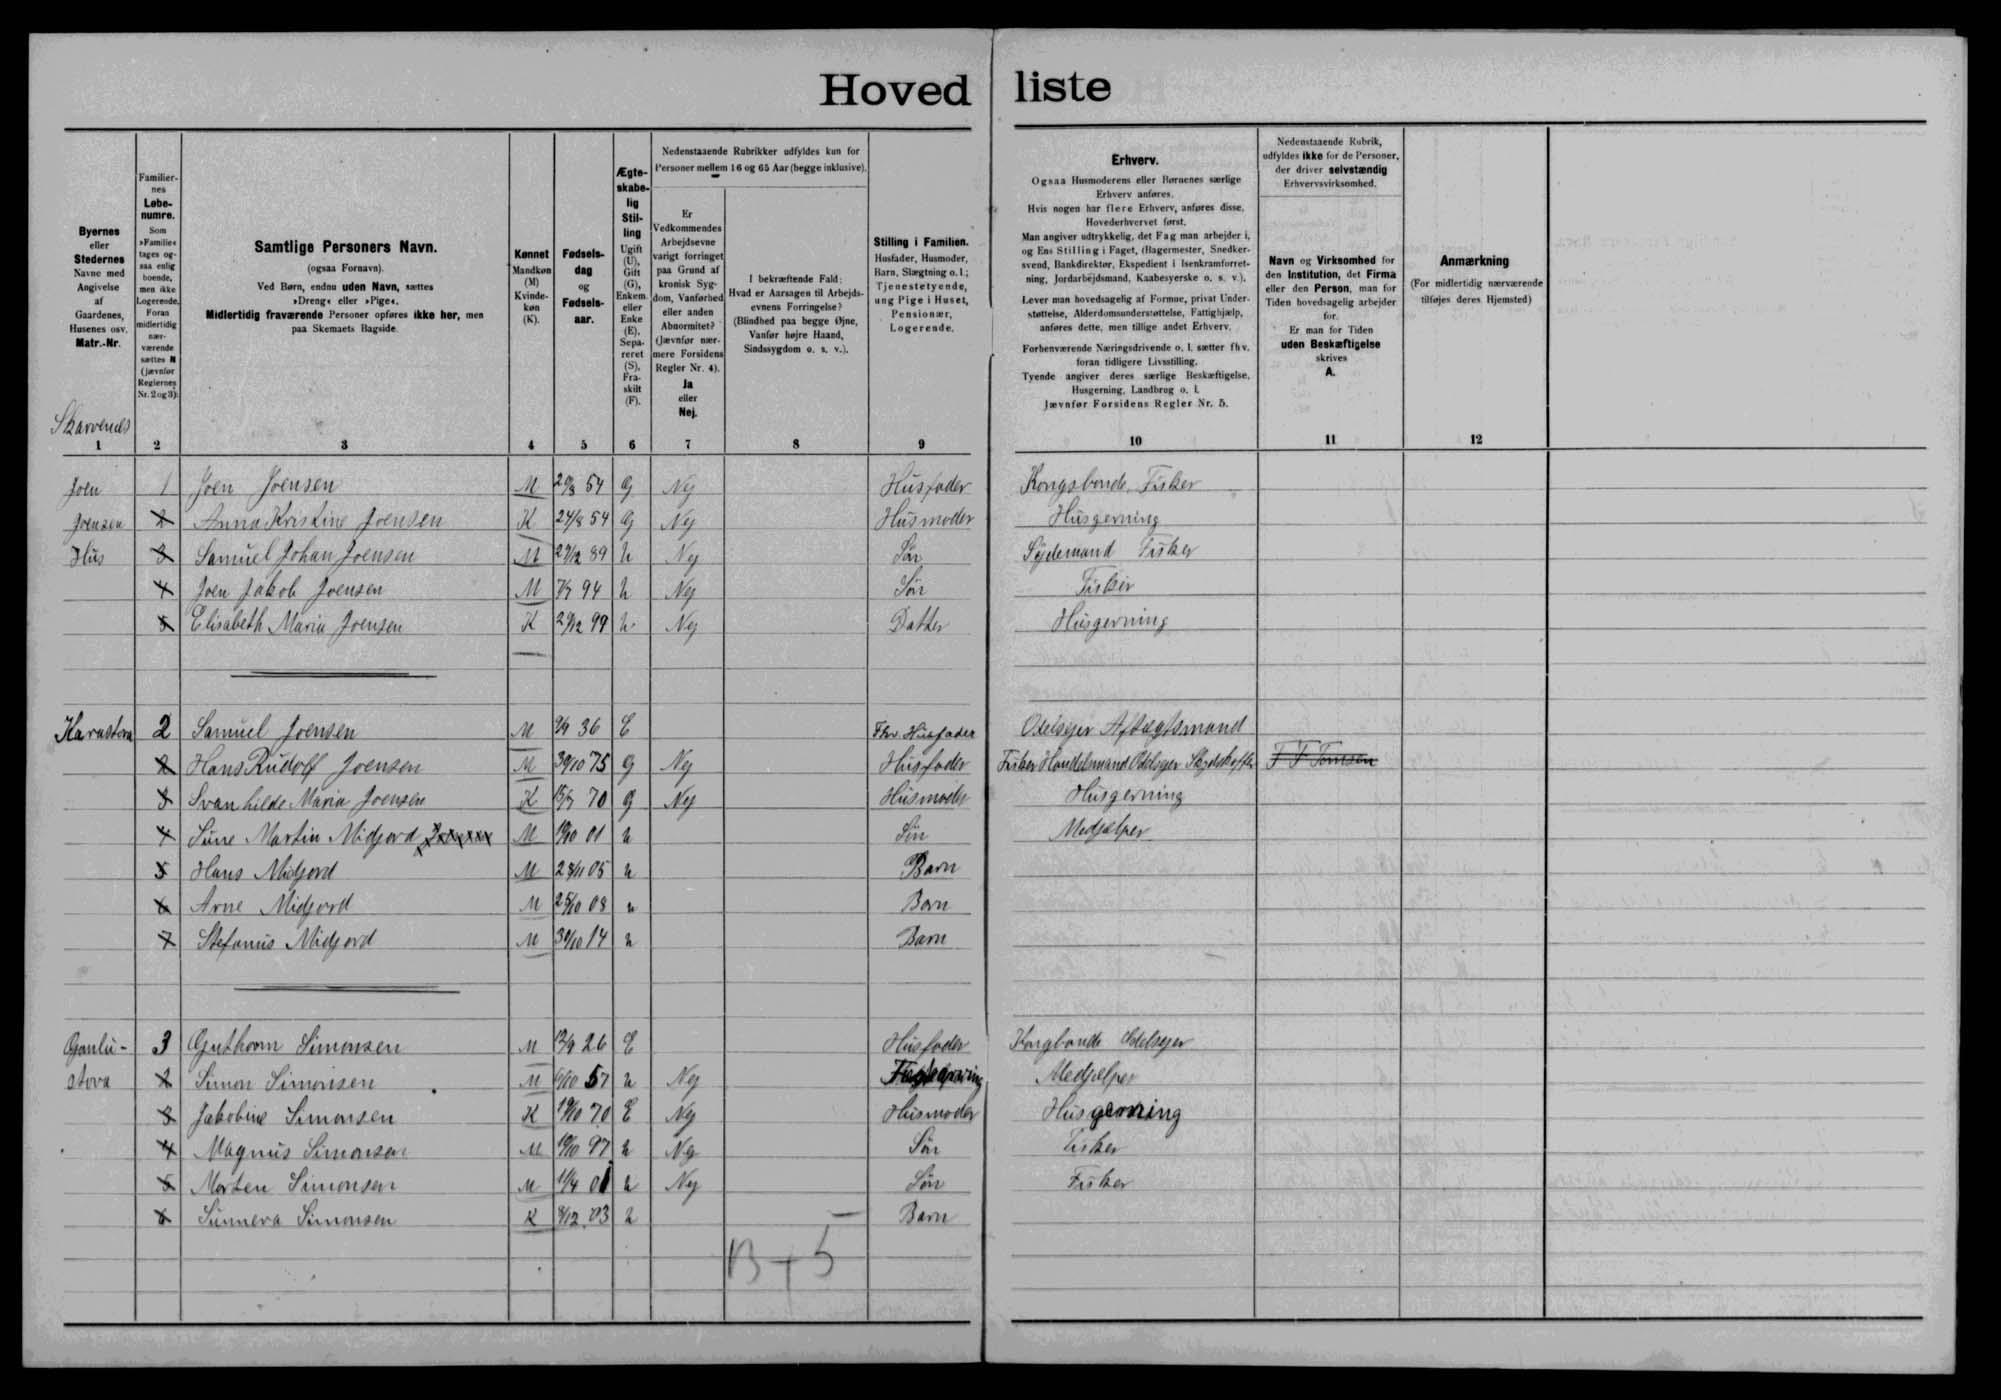 Hoved liste
Byernes
eller
Stedernes
Navne med
Angivelse
af
Gaardenes,
Husenes osv.
Matr.-Nr.
Familier-
nes
Løbe-
numre.
Som
»Familie«
tages og-
saa enlig
boende,
men ikke
Logerende.
Foran
midlertidig
nær-
værende
sættes N
(jævnfør
Reglernes
Nr. 2 og 3).
Samtlige Personers Navn.
(ogsaa Fornavn).
Ved Børn, endnu uden Navn, sættes
»Dreng« eller »Pige«.
Midlertidig fraværende Personer opføres ikke her, men
paa Skemaets Bagside.
Kønnet
Mandkøn
(M)
Kvinde-
køn
(K).
Fødsels-
dag
og
Fødsels-
aar.
Ægte-
skabe-
lig
Stil-
ling
Ugift
(U),
Gift
(G),
Enkem.
eller
Enke
(E),
Sepa-
reret
(S),
Fra-
skilt
(F).
Nedenstaaende Rubrikker udfyldes kun for
Personer mellem 16 og 65 Aar (begge inklusive).
Er
Vedkommendes
Arbejdsevne
varigt forringet
paa Grund af
kronisk Syg-
dom, Vanførhed
eller anden
Abnormitet?
(Jævnfør nær-
mere Forsidens
Regler Nr. 4).
Ja
eller
Nej.
I bekræftende Fald:
Hvad er Aarsagen til Arbejds-
evnens Forringelse?
(Blindhed paa begge Øjne,
Vanfør højre Haand,
Sindssygdom o. s. v.).
Stilling i Familien.
Husfader, Husmoder,
Barn, Slægtning o. l.;
Tjenestetyende,
ung Pige i Huset,
Pensionær,
Logerende.
Erhverv.
Ogsaa Husmoderens eller Børnenes særlige
Erhverv anføres.
Hvis nogen har flere Erhverv, anføres disse,
Hovederhvervet først.
Man angiver udtrykkelig, det Fag man arbejder i,
og Ens Stilling i Faget, (Bagermester, Snedker-
svend, Bankdirektør, Ekspedient i Isenkramforret-
ning, Jordarbejdsmand, Kaabesyerske o. s. v.).
Lever man hovedsagelig af Formue, privat Under-
støttelse, Alderdomsunderstøttelse, Fattighjælp,
anføres dette, men tillige andet Erhverv.
Forhenværende Næringsdrivende o. l. sætter fhv.
foran tidligere Livsstilling.
Tyende angiver deres særlige Beskæftigelse,
Husgerning, Landbrug o. l.
Jævnfør Forsidens Regler Nr. 5.
Nedenstaaende Rubrik,
udfyldes ikke for de Personer,
der driver selvstændig
Erhvervsvirksomhed.
Navn og Virksomhed for
den Institution, det Firma
eller den Person, man for
Tiden hovedsagelig arbejder
for.
Er man for Tiden
uden Beskæftigelse
skrives
A.
Anmærkning
(For midlertidig nærværende
tilføjes deres Hjemsted)
Skarvenes
1 2 3 4 5 6 7 8 9 10 11 12
Joen 1 Joen Joensen M 54 G Nej Husfader Kongsbonde, Fisker
Joensen 2 Anna Kristine Joensen K 24/8 54 G Nej Husmoder Husgerning
Hus 3 Samuel Johan Joensen M 89 U Nej Søn Fisker
4 Joen Jakob Joensen M 94 U Nej Søn Fisker
5 Elisabeth Maria Joensen K 29/12 99 U Nej Datter Husgerning
2 Samuel Joensen M 36 E Fhv. Husfader Odelsejer Aftægtsmand
2 Hans Rudolf Joensen M 30/10 75 G Nej Husfader Fisker Handelsmand Odelsejer
3 Svanhilde Maria Joensen K 70 G Nej Husmoder Husgerning
4 Sune Martin Midjord M 01 U Søn Medjælper
5 Hans Midjord M 28/11 05 U Barn
6 Arne Midjord M 25/10 08 U Barn
7 Stefanus Midjord M 30/10 14 U Barn
3 Guthorm Simonsen M 26 E Husfader Kongbonde Odelsejer
stova 2 Simon Simonsen M 57 U Nej Medjælper
3 Jakobine Simonsen K 19/10 70 E Nej Husmoder Husgerning
4 Magnus Simonsen M 97 U Nej Søn Fisker
5 Morten Simonsen M 11/4 01 U Nej Søn Fisker
6 Sunneva Simonsen K 8/12 03 U Barn
13 + 5